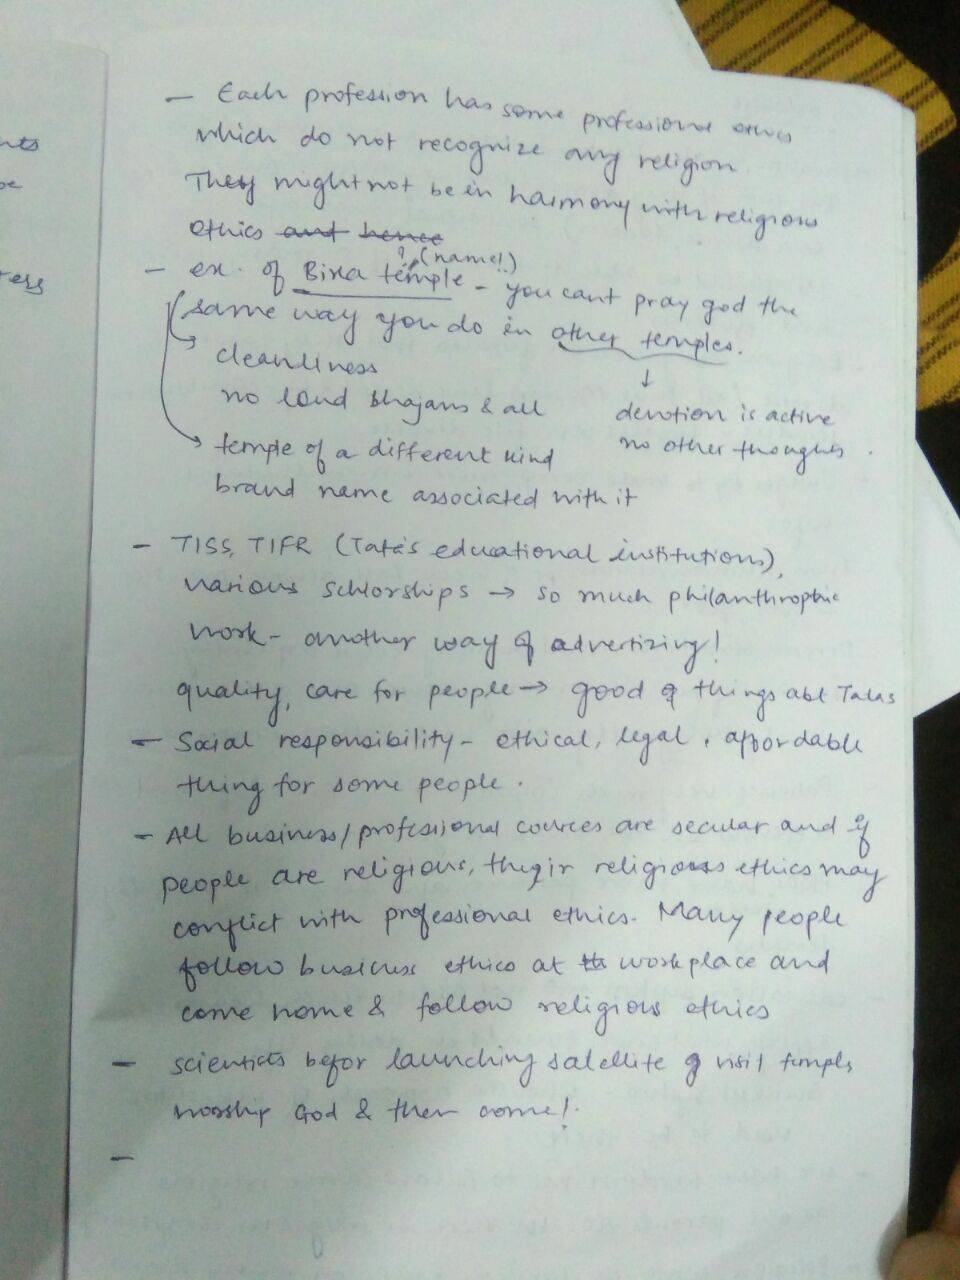 nts
be
ress
- Each profession has some professional ethics
which do not recognize any religion
They might not be in harmony with religious
ethics and hence
? (name!)
- ex. of Birla temple - you cant pray god the
same way you do in other temples.
cleanliness
no loud bhajans & all
devotion is active
no other thoughts.
temple of a different kind
brand name associated with it
- TISS, TIFR (Tata's educational institutions),
various schlorships → so much philanthrophic
work - another way of advertizing!
quality, care for people → good things abt Tatas
- Social responsibility - ethical, legal, affordable
thing for some people.
- All business/professional cources are secular and if
people are religious, their religious ethics may
conflict with professional ethics. Many people
follow business ethics at workplace and
come home & follow religious ethics
- scientists befor launching satellite visit temples,
worship God & then come!
-